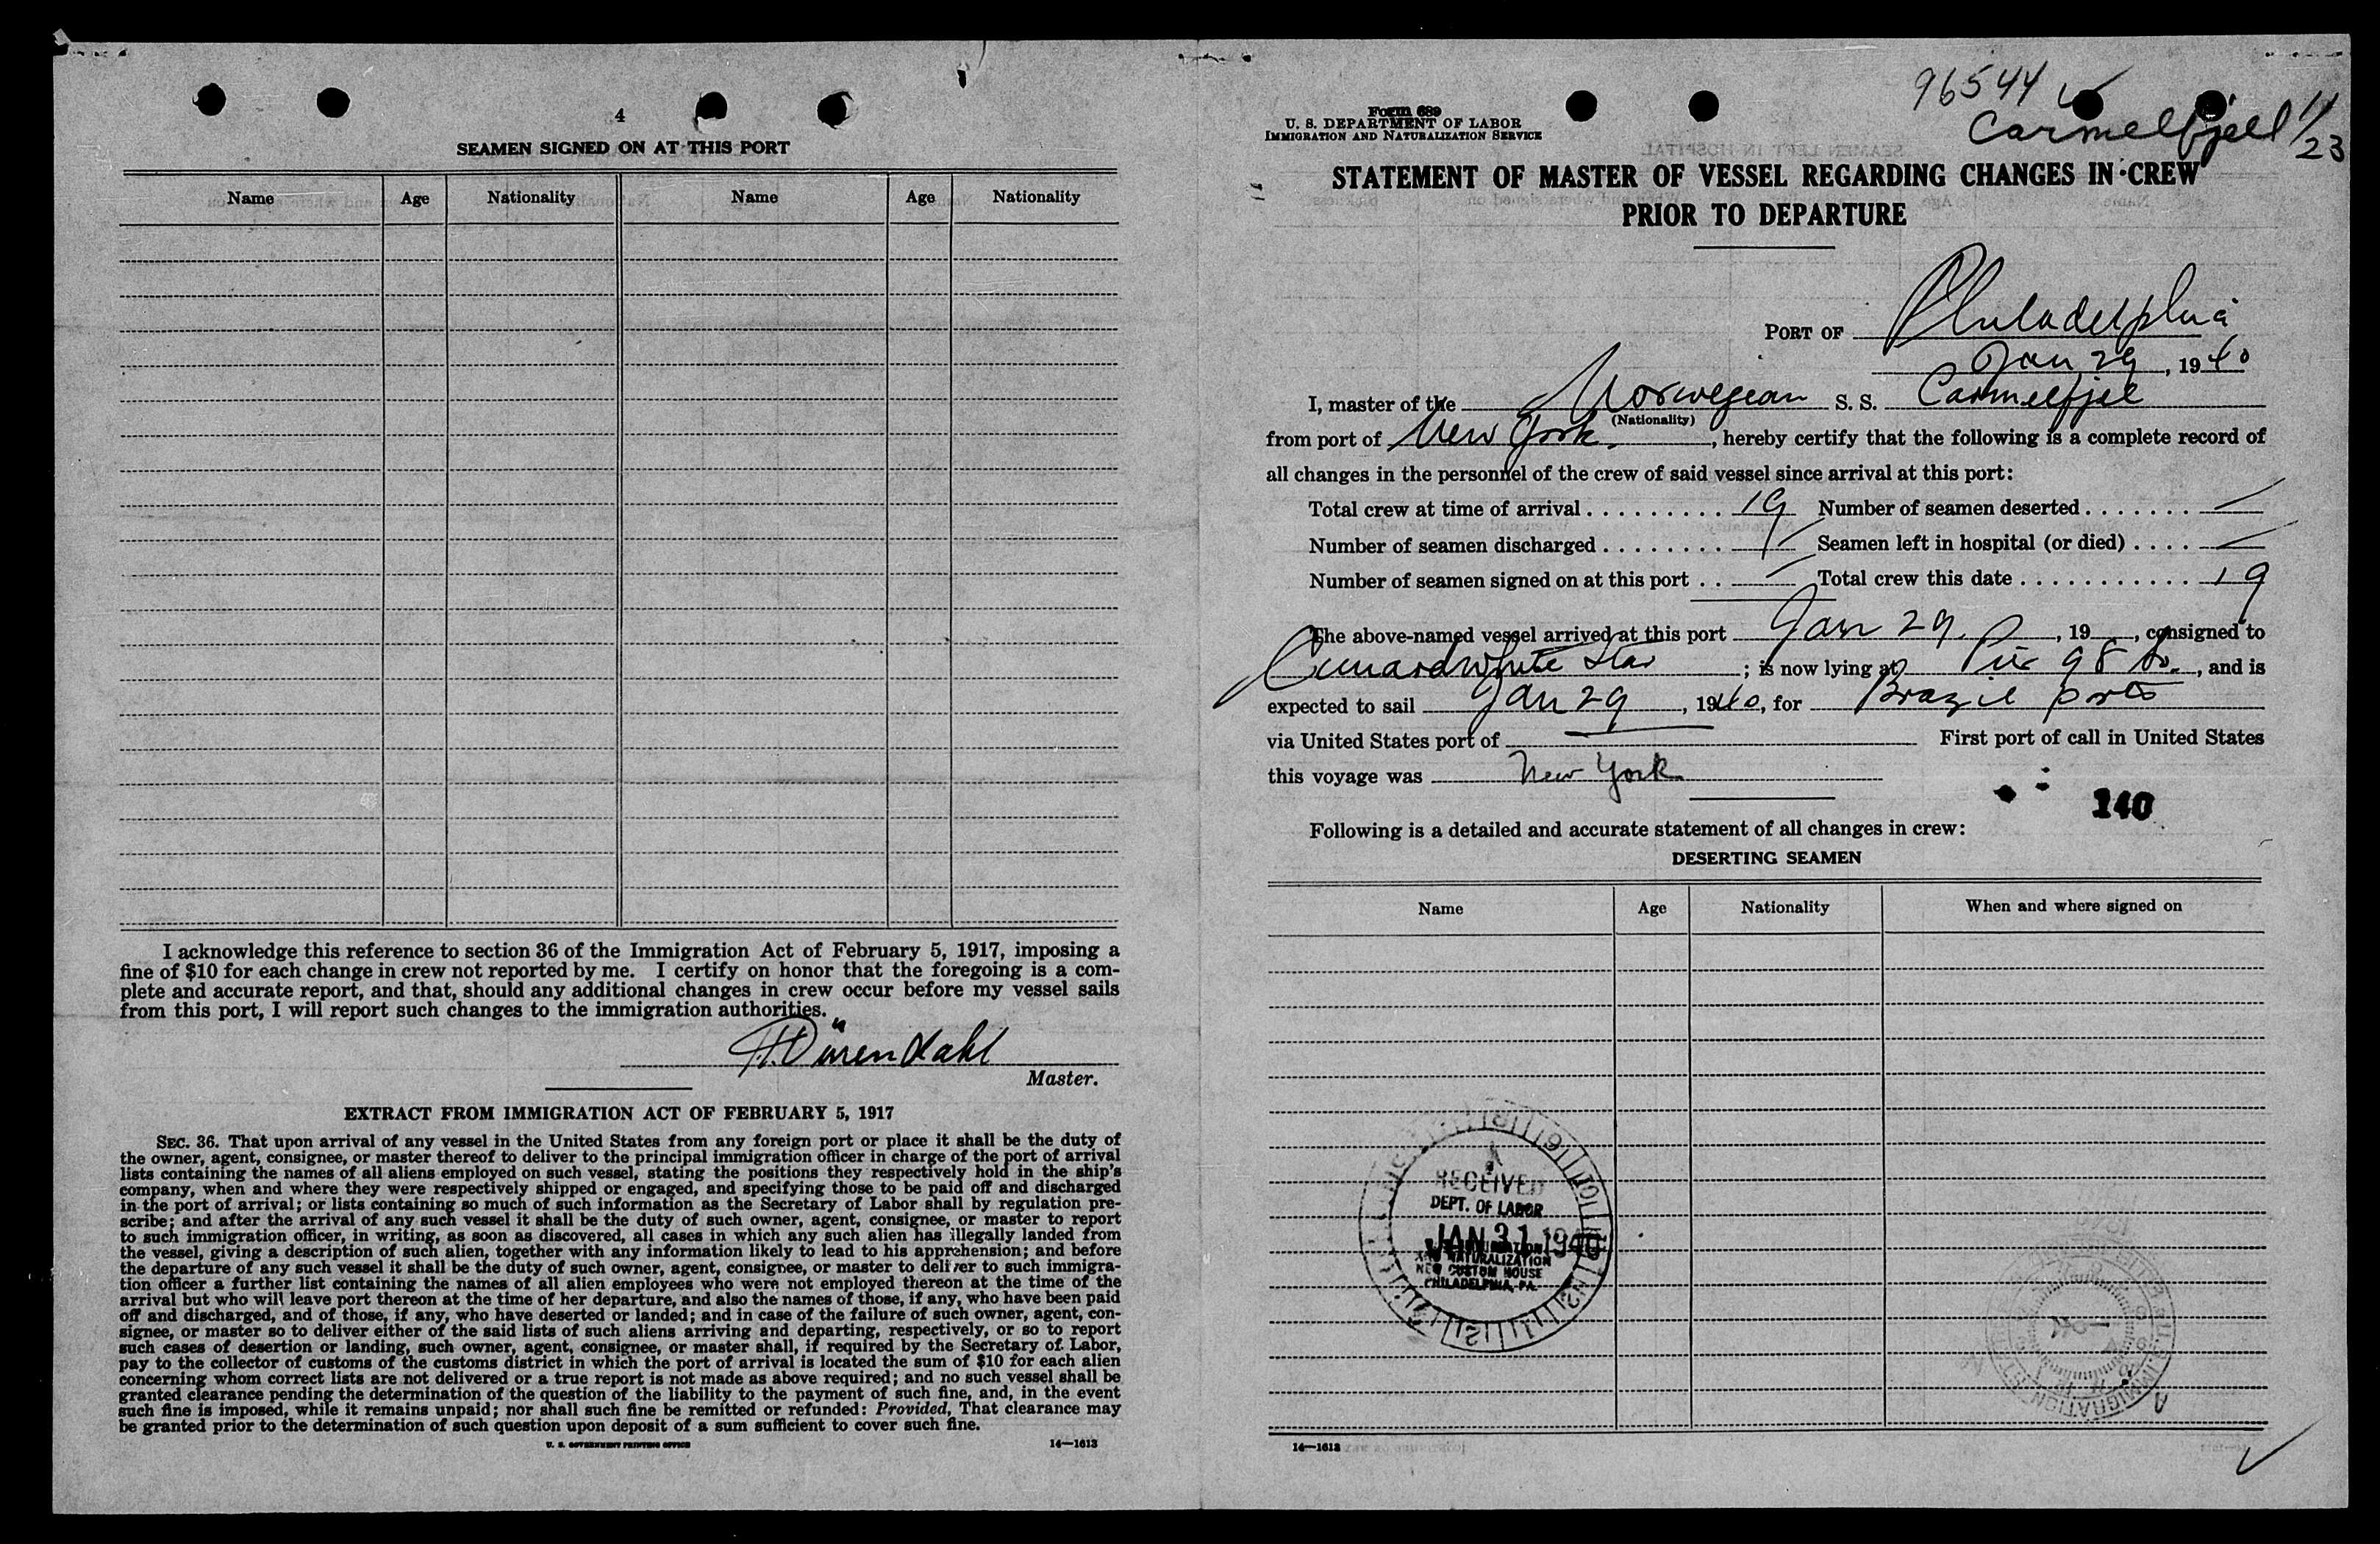 4
SEAMEN SIGNED ON AT THIS PORT
Name Age Nationality Name Age Nationality
I acknowledge this reference to section 36 of the Immigration Act of February 5, 1917, imposing a
fine of $10 for each change in crew not reported by me. I certify on honor that the foregoing is a com-
plete and accurate report, and that, should any additional changes in crew occur before my vessel sails
from this port, I will report such changes to the immigration authorities.
Master.
EXTRACT FROM IMMIGRATION ACT OF FEBRUARY 5, 1917
SEC. 36. That upon arrival of any vessel in the United States from any foreign port or place it shall be the duty of
the owner, agent, consignee, or master thereof to deliver to the principal immigration officer in charge of the port of arrival
lists containing the names of all aliens employed on such vessel, stating the positions they respectively hold in the ship's
company, when and where they were respectively shipped or engaged, and specifying those to be paid off and discharged
in the port of arrival; or lists containing so much of such information as the Secretary of Labor shall by regulation pre-
scribe; and after the arrival of any such vessel it shall be the duty of such owner, agent, consignee, or master to report
to such immigration officer, in writing, as soon as discovered, all cases in which any such alien has illegally landed from
the vessel, giving a description of such alien, together with any information likely to lead to his apprehension; and before
the departure of any such vessel it shall be the duty of such owner, agent, consignee, or master to deliver to such immigra-
tion officer a further list containing the names of all alien employees who were not employed thereon at the time of the
arrival but who will leave port thereon at the time of her departure, and also the names of those, if any, who have been paid
off and discharged, and of those, if any, who have deserted or landed; and in case of the failure of such owner, agent, con-
signee, or master so to deliver either of the said lists of such aliens arriving and departing, respectively, or so to report
such cases of desertion or landing, such owner, agent, consignee, or master shall, if required by the Secretary of Labor,
pay to the collector of customs of the customs district in which the port of arrival is located the sum of $10 for each alien
concerning whom correct lists are not delivered or a true report is not made as above required; and no such vessel shall be
granted clearance pending the determination of the question of the liability to the payment of such fine, and, in the event
such fine is imposed, while it remains unpaid; nor shall such fine be remitted or refunded: Provided, That clearance may
be granted prior to the determination of such question upon deposit of a sum sufficient to cover such fine.
U. S. GOVERNMENT PRINTING OFFICE 14—1613
96544
Carmelfjell 11/23
Form 689
U. S. DEPARTMENT OF LABOR
IMMIGRATION AND NATURALIZATION SERVICE
STATEMENT OF MASTER OF VESSEL REGARDING CHANGES IN CREW
PRIOR TO DEPARTURE
PORT OF Philadelphia
Jan 29, 1940
I, master of the Norwegian S. S. Carmelfjel
(Nationality)
from port of New York, hereby certify that the following is a complete record of
all changes in the personnel of the crew of said vessel since arrival at this port:
Total crew at time of arrival 19 Number of seamen deserted —
Number of seamen discharged — Seamen left in hospital (or died) —
Number of seamen signed on at this port — Total crew this date 19
The above-named vessel arrived at this port Jan 29, 19 , consigned to
Cunard White Star; is now lying at Pier 98 So., and is
expected to sail Jan 29, 1940, for Brazil ports
via United States port of — First port of call in United States
this voyage was New York
140
Following is a detailed and accurate statement of all changes in crew:
DESERTING SEAMEN
Name Age Nationality When and where signed on
RECEIVED
DEPT. OF LABOR
JAN 31 1940
NATURALIZATION
NEW CUSTOM HOUSE
PHILADELPHIA, PA.
14—1613